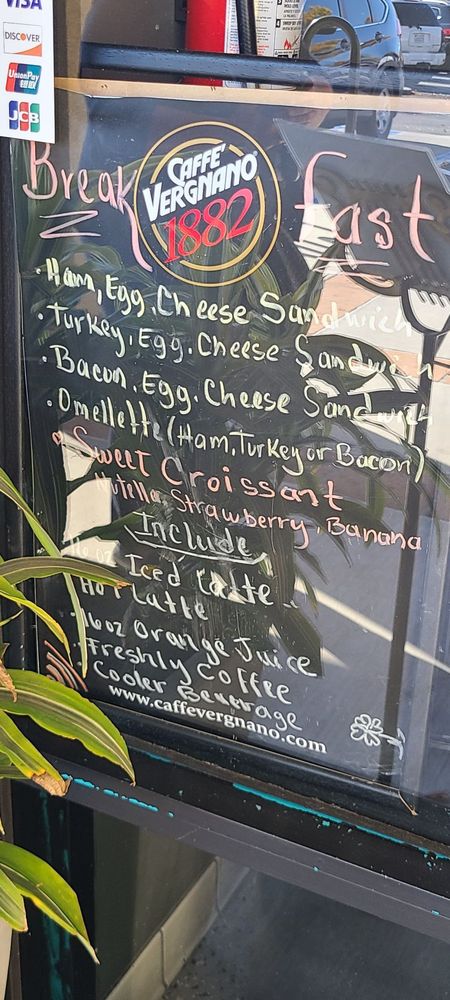 VISA
DISCOVER
UnionPay
银联
JCB
Break fast
CAFFÈ
VERGNANO
1882
• Ham, Egg, Cheese Sandwich
• Turkey, Egg, Cheese Sandwich
• Bacon, Egg, Cheese Sandwich
• Omellette (Ham, Turkey or Bacon)
Sweet Croissant
Nutella, Strawberry, Banana
Include
16 oz Iced Latte
Hot Latte
• 16 oz Orange Juice
• Freshly Coffee
• Cooler Beverage
www.caffevergnano.com